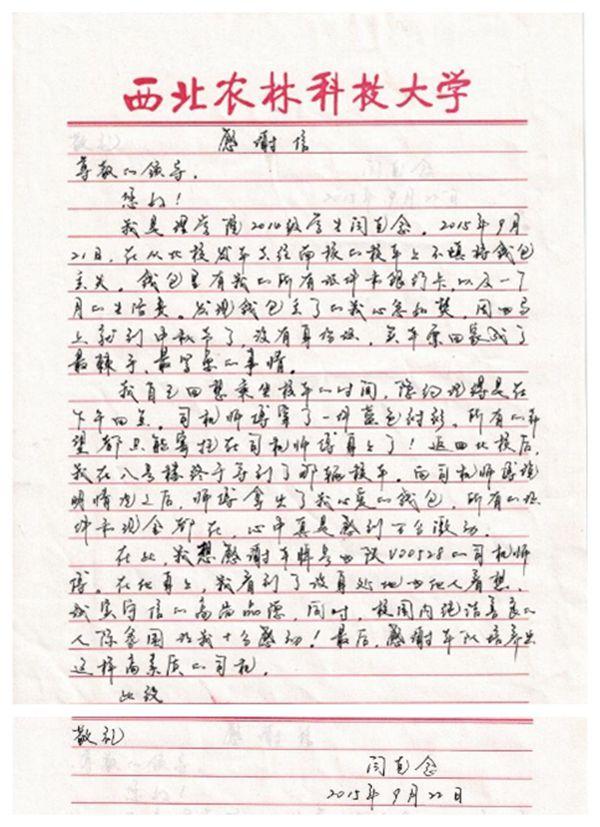 西北农林科技大学
感谢信
尊敬的领导：
您好！
我是理学院2014级学生闫苞念。2015年9月
21日，在从北校发车去往南校的校车上不慎将钱包
丢失。钱包里有我的所有证件和银行卡，以及一个
月的生活费。发现钱包丢了的我心急如焚，因为马
上就到中秋节了，没有身份证，买车票回家成了
最棘手、最写实的事情。
我自己回想乘坐校车的时间，隐约觉得是在
下午四点，司机师傅穿了一件蓝色衬衫。所有的希
望都只能寄托在司机师傅身上了！返回北校后，
我在八号楼终于等到了那辆校车。向司机师傅说
明情况之后，师傅拿出了我心爱的钱包，所有的证
件和现金都在，心中真是感到万分激动。
在此，我想感谢车牌号为陕V00528的司机师
傅。在他身上，我看到了设身处地为他人着想、
诚实守信的高尚品德，同时，校园内纯洁善良的
人际氛围为我十分感动！最后，感谢车队培养出
这样高素质的司机。
此致
敬礼
2015年9月22日